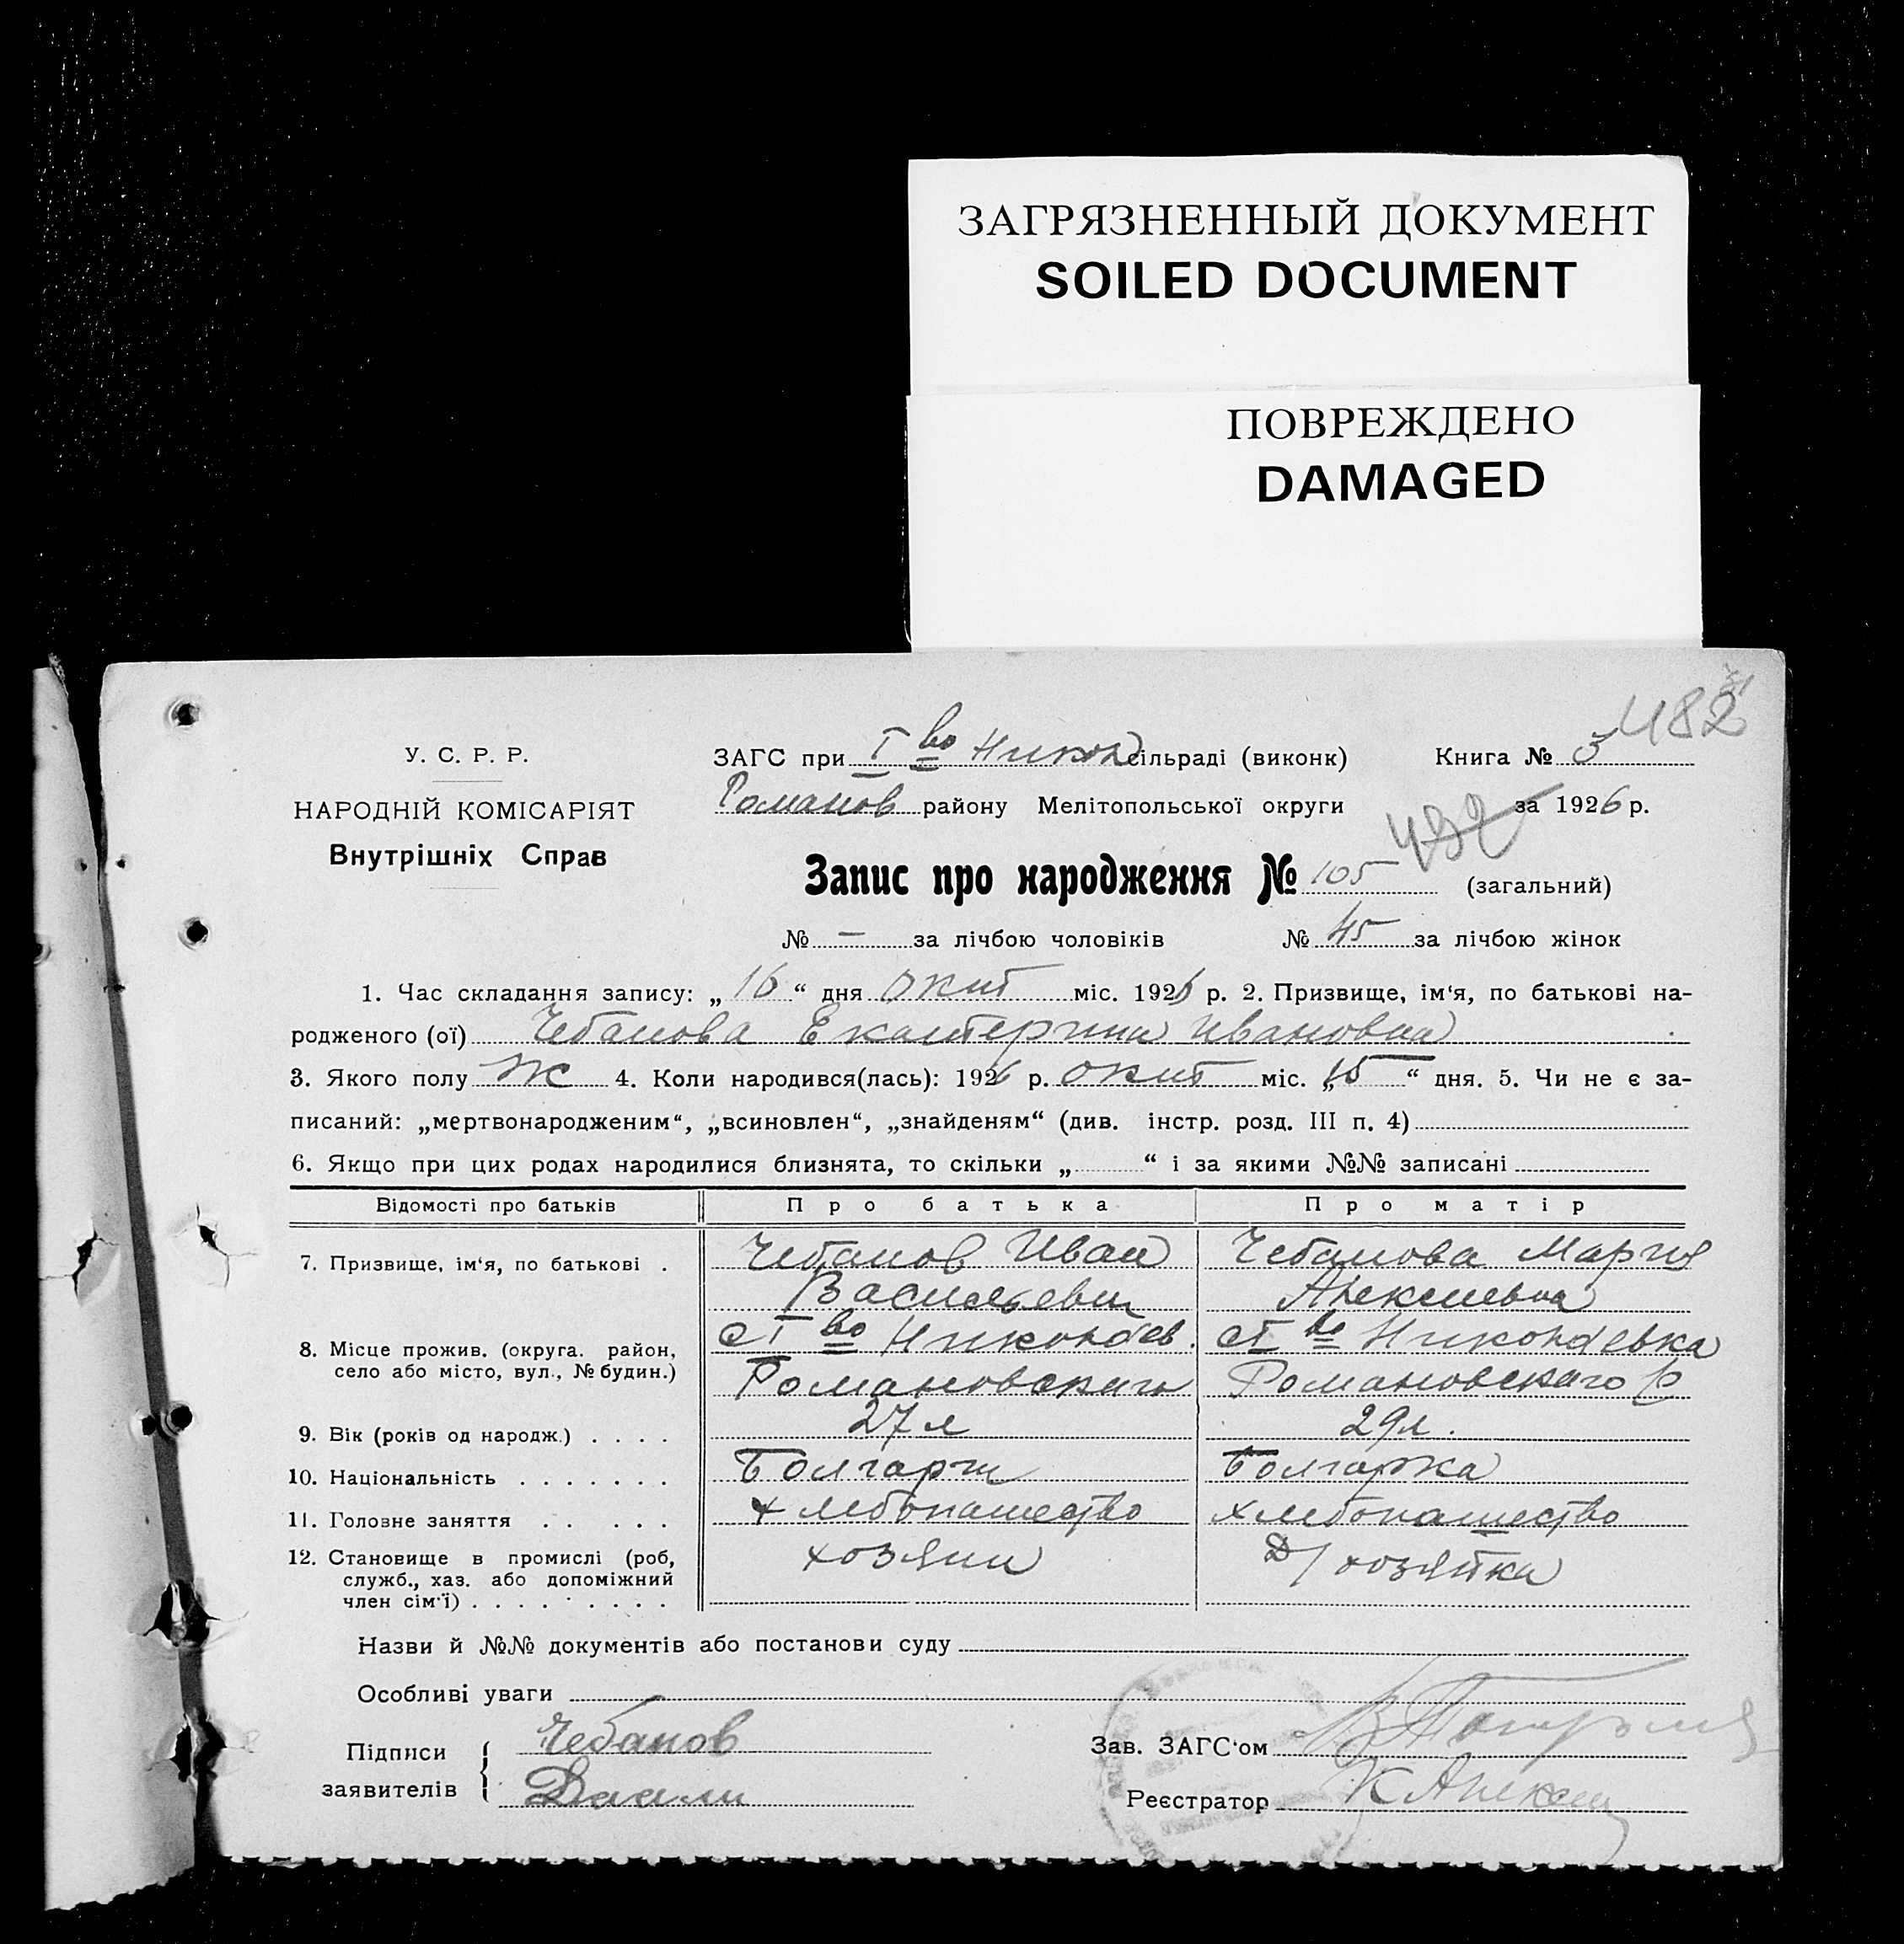 ЗАГРЯЗНЕННЫЙ ДОКУМЕНТ
SOILED DOCUMENT
ПОВРЕЖДЕНО
DAMAGED
482
У. С. Р. Р.
НАРОДНІЙ КОМІСАРІЯТ
Внутрішніх Справ
ЗАГС при І во Никол сільраді (виконк) Книга № 3
Романов району Мелітопольської округи за 1926 р.
Запис про народження № 105 (загальний)
№ — за лічбою чоловіків № 45 за лічбою жінок
1. Час складання запису: „16“ дня окт міс. 1926 р. 2. Призвище, ім‘я, по батькові на-
родженого (ої) Чебанова Екатерина Ивановна
3. Якого полу Ж 4. Коли народився(лась): 1926 р. окт міс. „15“ дня. 5. Чи не є за-
писаний: „мертвонародженим“, „всиновлен“, „знайденям“ (див. інстр. розд. III п. 4)
6. Якщо при цих родах народилися близнята, то скільки „ “ і за якими №№ записані
Відомості про батьків Про батька Про матір
7. Призвище, ім‘я, по батькові . Чебанов Иван Чебанова Мария
Васильевич Алексеевна
8. Місце прожив. (округа. район, с І во Николаев. с І во Николаевка
село або місто, вул., № будин.) Романовскаго Романовскаго р
9. Вік (років од народж.) . . . . 27 л 29 л.
10. Національність . . . . . . . Болгарин Болгарка
11. Головне заняття . . . . . хлебопашество хлебопашество
12. Становище в промислі (роб, хозяин Д/хозяйка
служб., хаз. або допоміжний
член сім‘ї) . . . . . . . . .
Назви й №№ документів або постанови суду
Особливі уваги
Підписи Чебанов Зав. ЗАГС‘ом
заявителів Реєстратор К Алексе